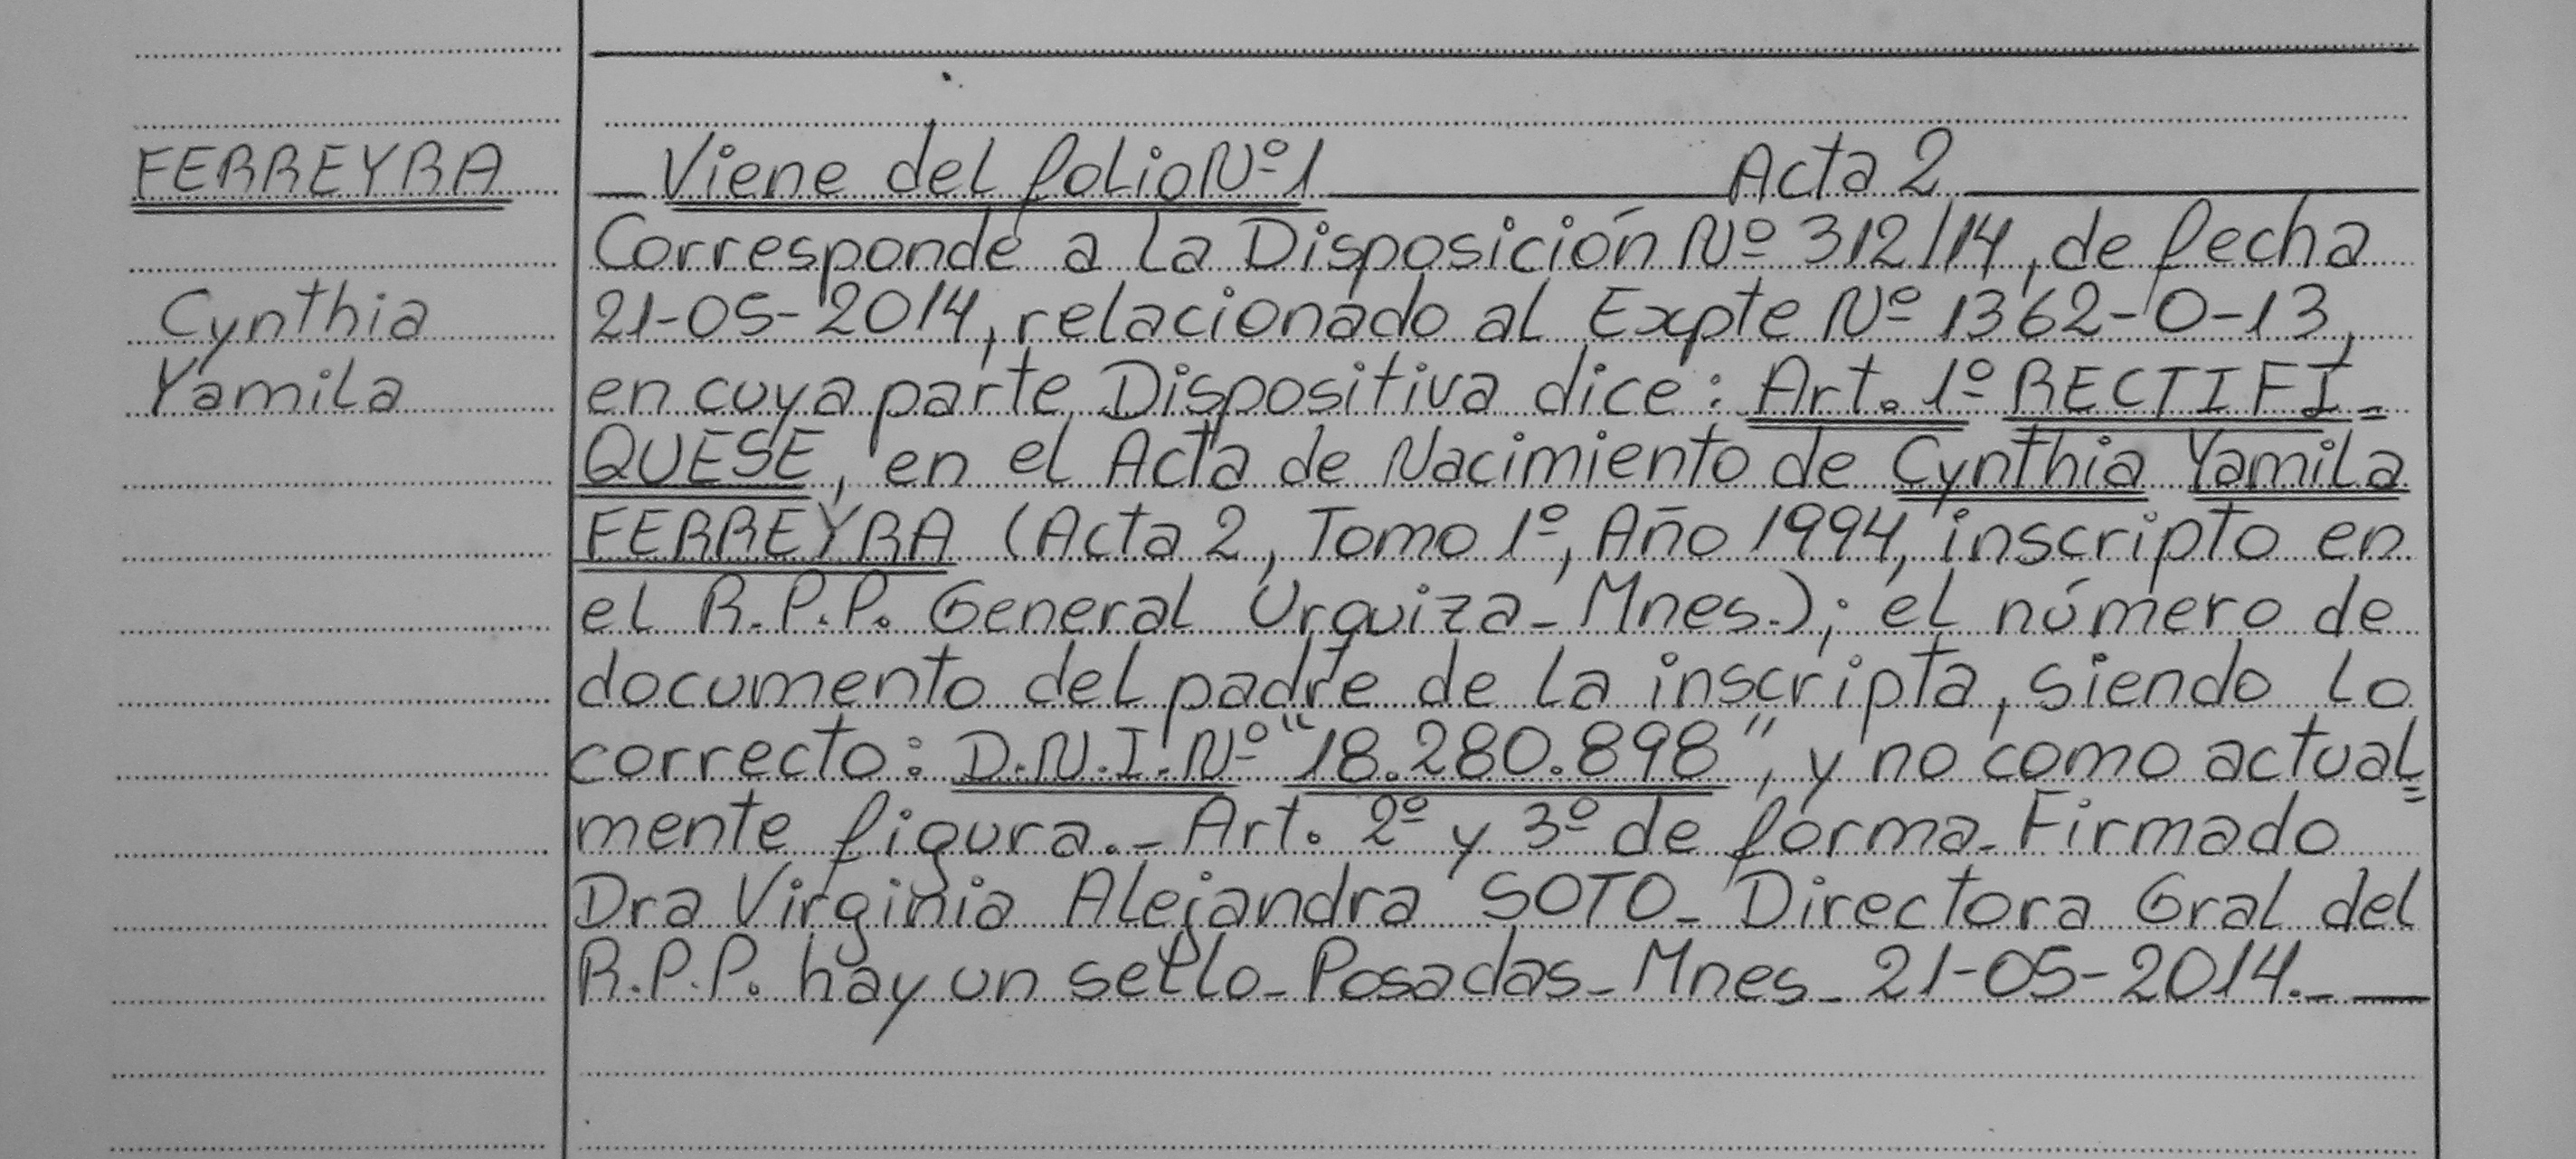 FERREYRA
Cynthia
Yamila
Viene del folio Nº 1 Acta 2
Corresponde a la Disposición Nº 312/14, de fecha
21-05-2014, relacionado al Expte Nº 1362-O-13,
en cuya parte Dispositiva dice: Art. 1º RECTIFÍ=
QUESE, en el Acta de Nacimiento de Cynthia Yamila
FERREYRA (Acta 2, Tomo 1º, Año 1994, inscripto en
el R.P.P. General Urquiza - Mnes.); el número de
documento del padre de la inscripta, siendo lo
correcto: D.N.I. Nº "18.280.898", y no como actual=
mente figura.- Art. 2º y 3º de forma - Firmado
Dra Virginia Alejandra SOTO - Directora Gral del
R.P.P. hay un sello - Posadas - Mnes - 21-05-2014.-